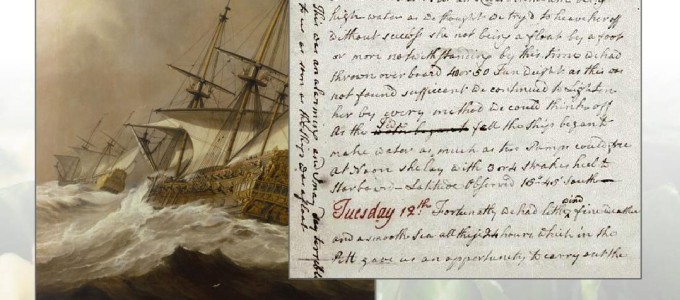 This was an alarming and I may say terrible
to us as soon as the Ship was afloat
high water as we thought we try'd to heave her off
without success she not being a float by a foot
or more notwithstanding by this time we had
thrown over board 40 or 50 Tun weight as this was
not found sufficent we continued to Lighten
her by every method we could think off
As the Tide fell the Ship began to
make water as much as two Pumps could free
at Noon she lay with 3 or 4 Strakes heel to
Starboard — Latitude Observed 15°.45' South
Tuesday 12th Fortunatly we had little wind fine weather
and a smooth Sea all this 24 hours which in the
PM gave us an opportunity to carry out the